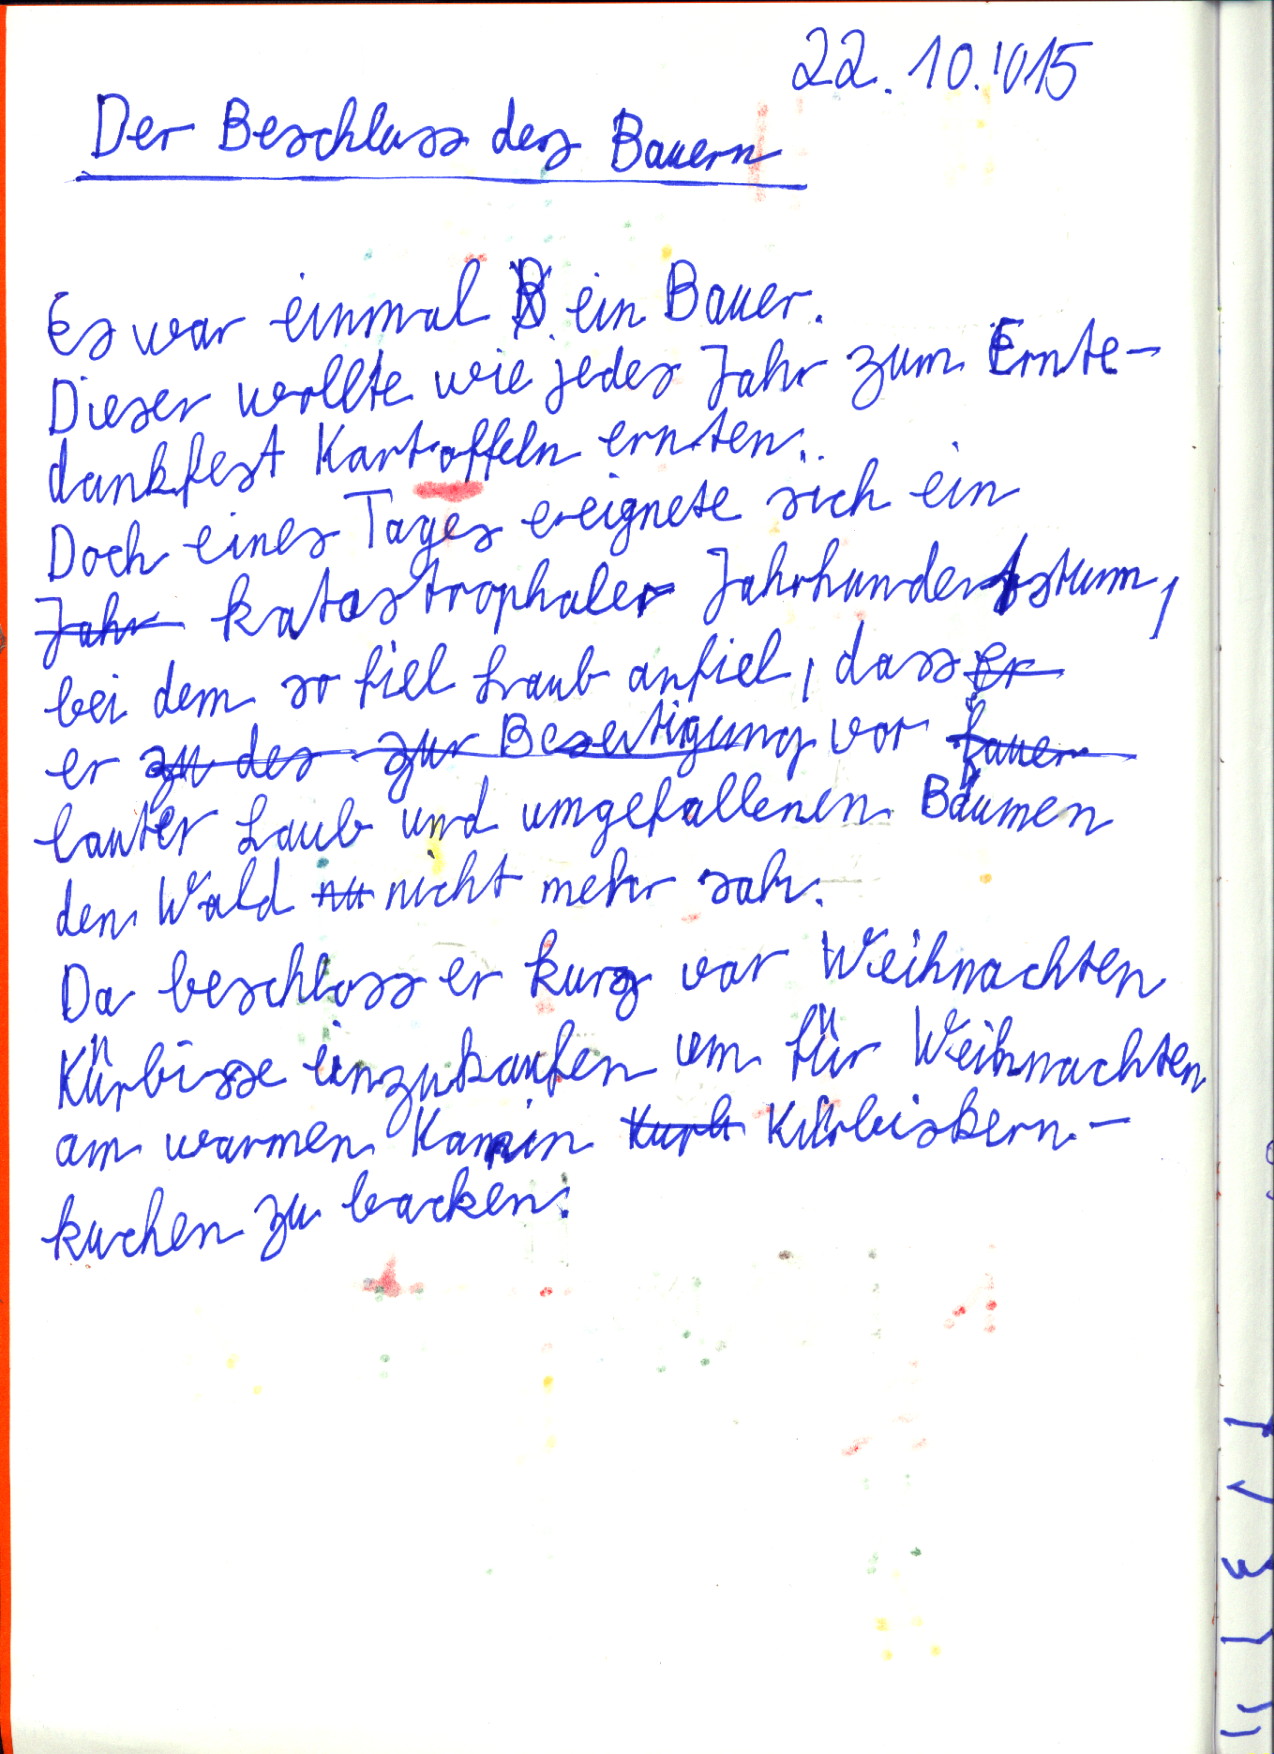 22.10.'015
Der Beschluss des Bauern
Es war einmal ein Bauer.
Dieser wollte wie jedes Jahr zum Ernte-
dankfest Kartoffeln ernten.
Doch eines Tages ereignete sich ein
Jahr katastrophaler Jahrhundertsturm,
bei dem so fiel Laub anfiel, dass er
er zu des zur Beseitigung vor
lauter Laub und umgefallenen Bäumen
den Wald nicht mehr sah.
Da beschloss er kurz vor Weihnachten
Kürbisse einzukaufen um für Weihnachten
am warmen Kamin Kürbiskern-
kuchen zu backen.